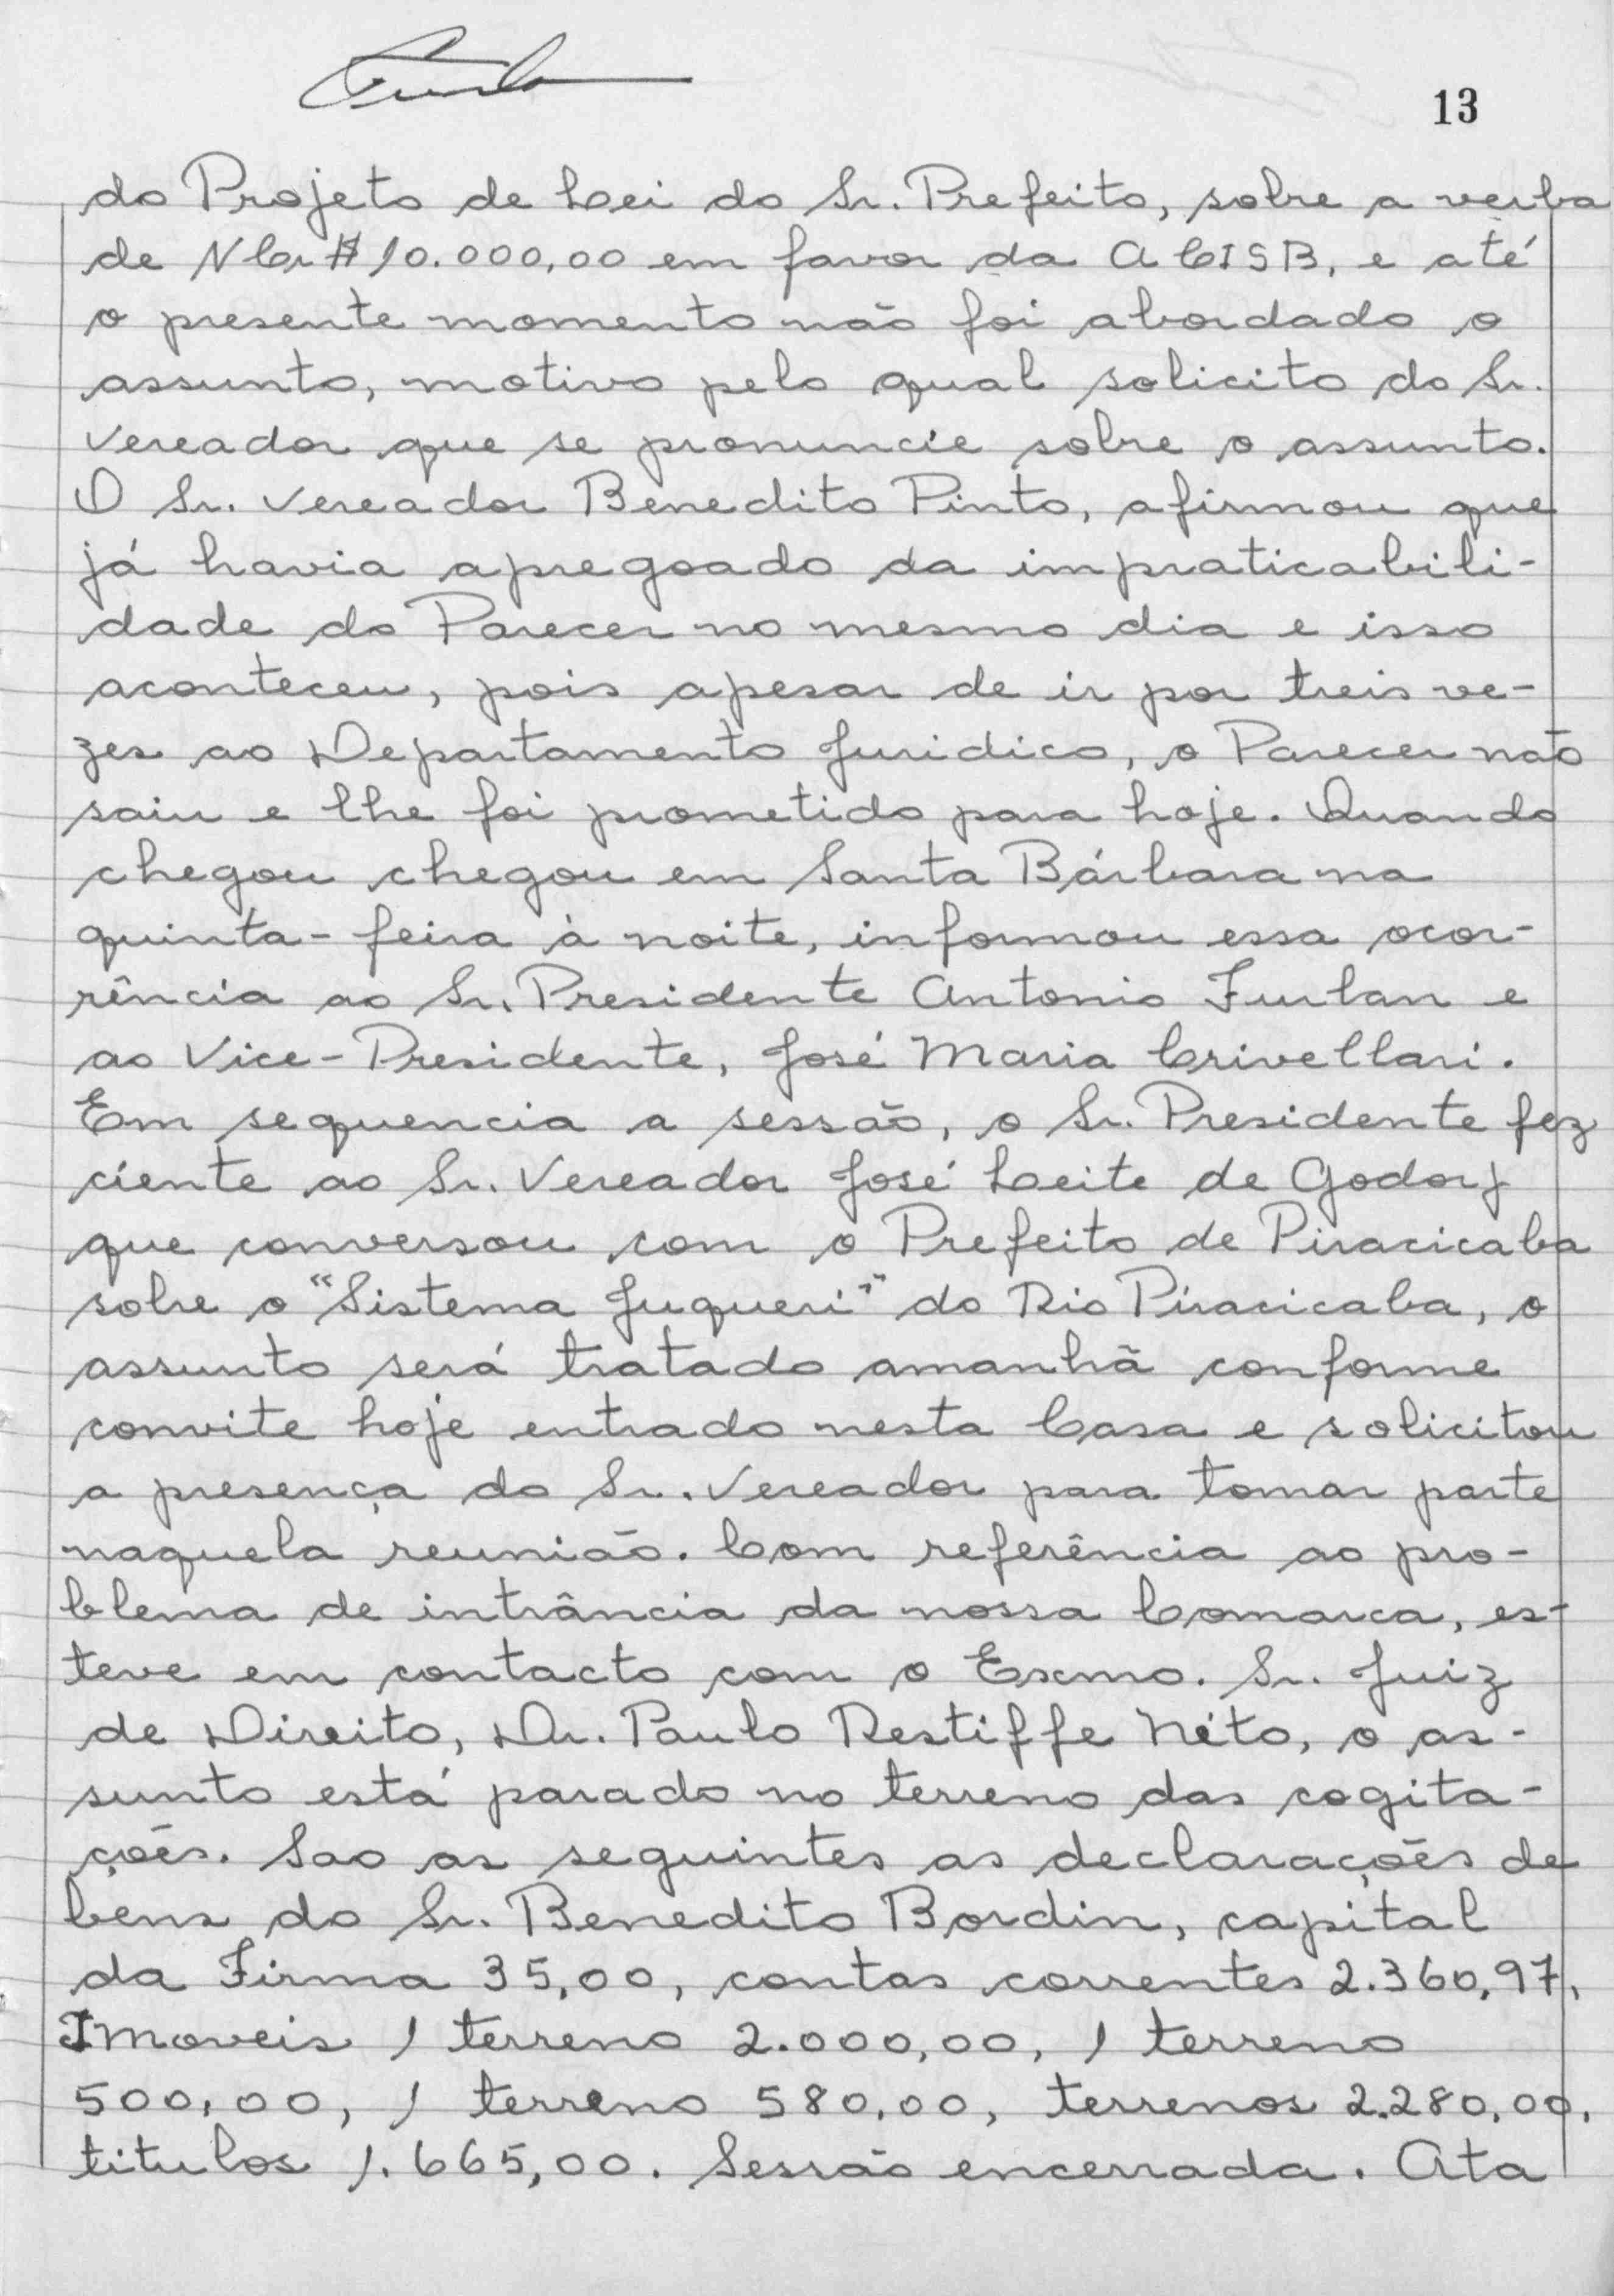 13
do Projeto de Lei do Sr. Prefeito, sobre a verba
de NCr$ 10.000,00 em favor da ACISB, e até
o presente momento não foi abordado o
assunto, motivo pelo qual solicito do Sr.
Vereador que se pronuncie sobre o assunto.
O Sr. Vereador Benedito Pinto, afirmou que
já havia apregoado da impraticabili-
dade do Parecer no mesmo dia e isso
aconteceu, pois apesar de ir por treis ve-
zes ao Departamento Juridico, o Parecer não
saiu e lhe foi prometido para hoje. Quando
chegou chegou em Santa Bárbara na
quinta-feira à noite, informou essa ocor-
rência ao Sr. Presidente Antonio Furlan e
ao Vice-Presidente, José Maria Crivellari.
Em sequencia a sessão, o Sr. Presidente fez
ciente ao Sr. Vereador José Leite de Godoy
que conversou com o Prefeito de Piracicaba
sobre o "Sistema Juqueri" do Rio Piracicaba, o
assunto será tratado amanhã conforme
convite hoje entrado nesta Casa e solicitou
a presença do Sr. Vereador para tomar parte
naquela reunião. Com referência ao pro-
blema de intrância da nossa Comarca, es-
teve em contacto com o Exmo. Sr. Juiz
de Direito, Dr. Paulo Restiffe Néto, o as-
sunto está parado no terreno das cogita-
ções. Sao as seguintes as declarações de
bens do Sr. Benedito Bordin, capital
da Firma 35,00, contas correntes 2.360,97,
Imoveis 1 terreno 2.000,00, 1 terreno
500,00, 1 terreno 580,00, terrenos 2.280,00,
titulos 1.665,00. Sessão encerrada. Ata